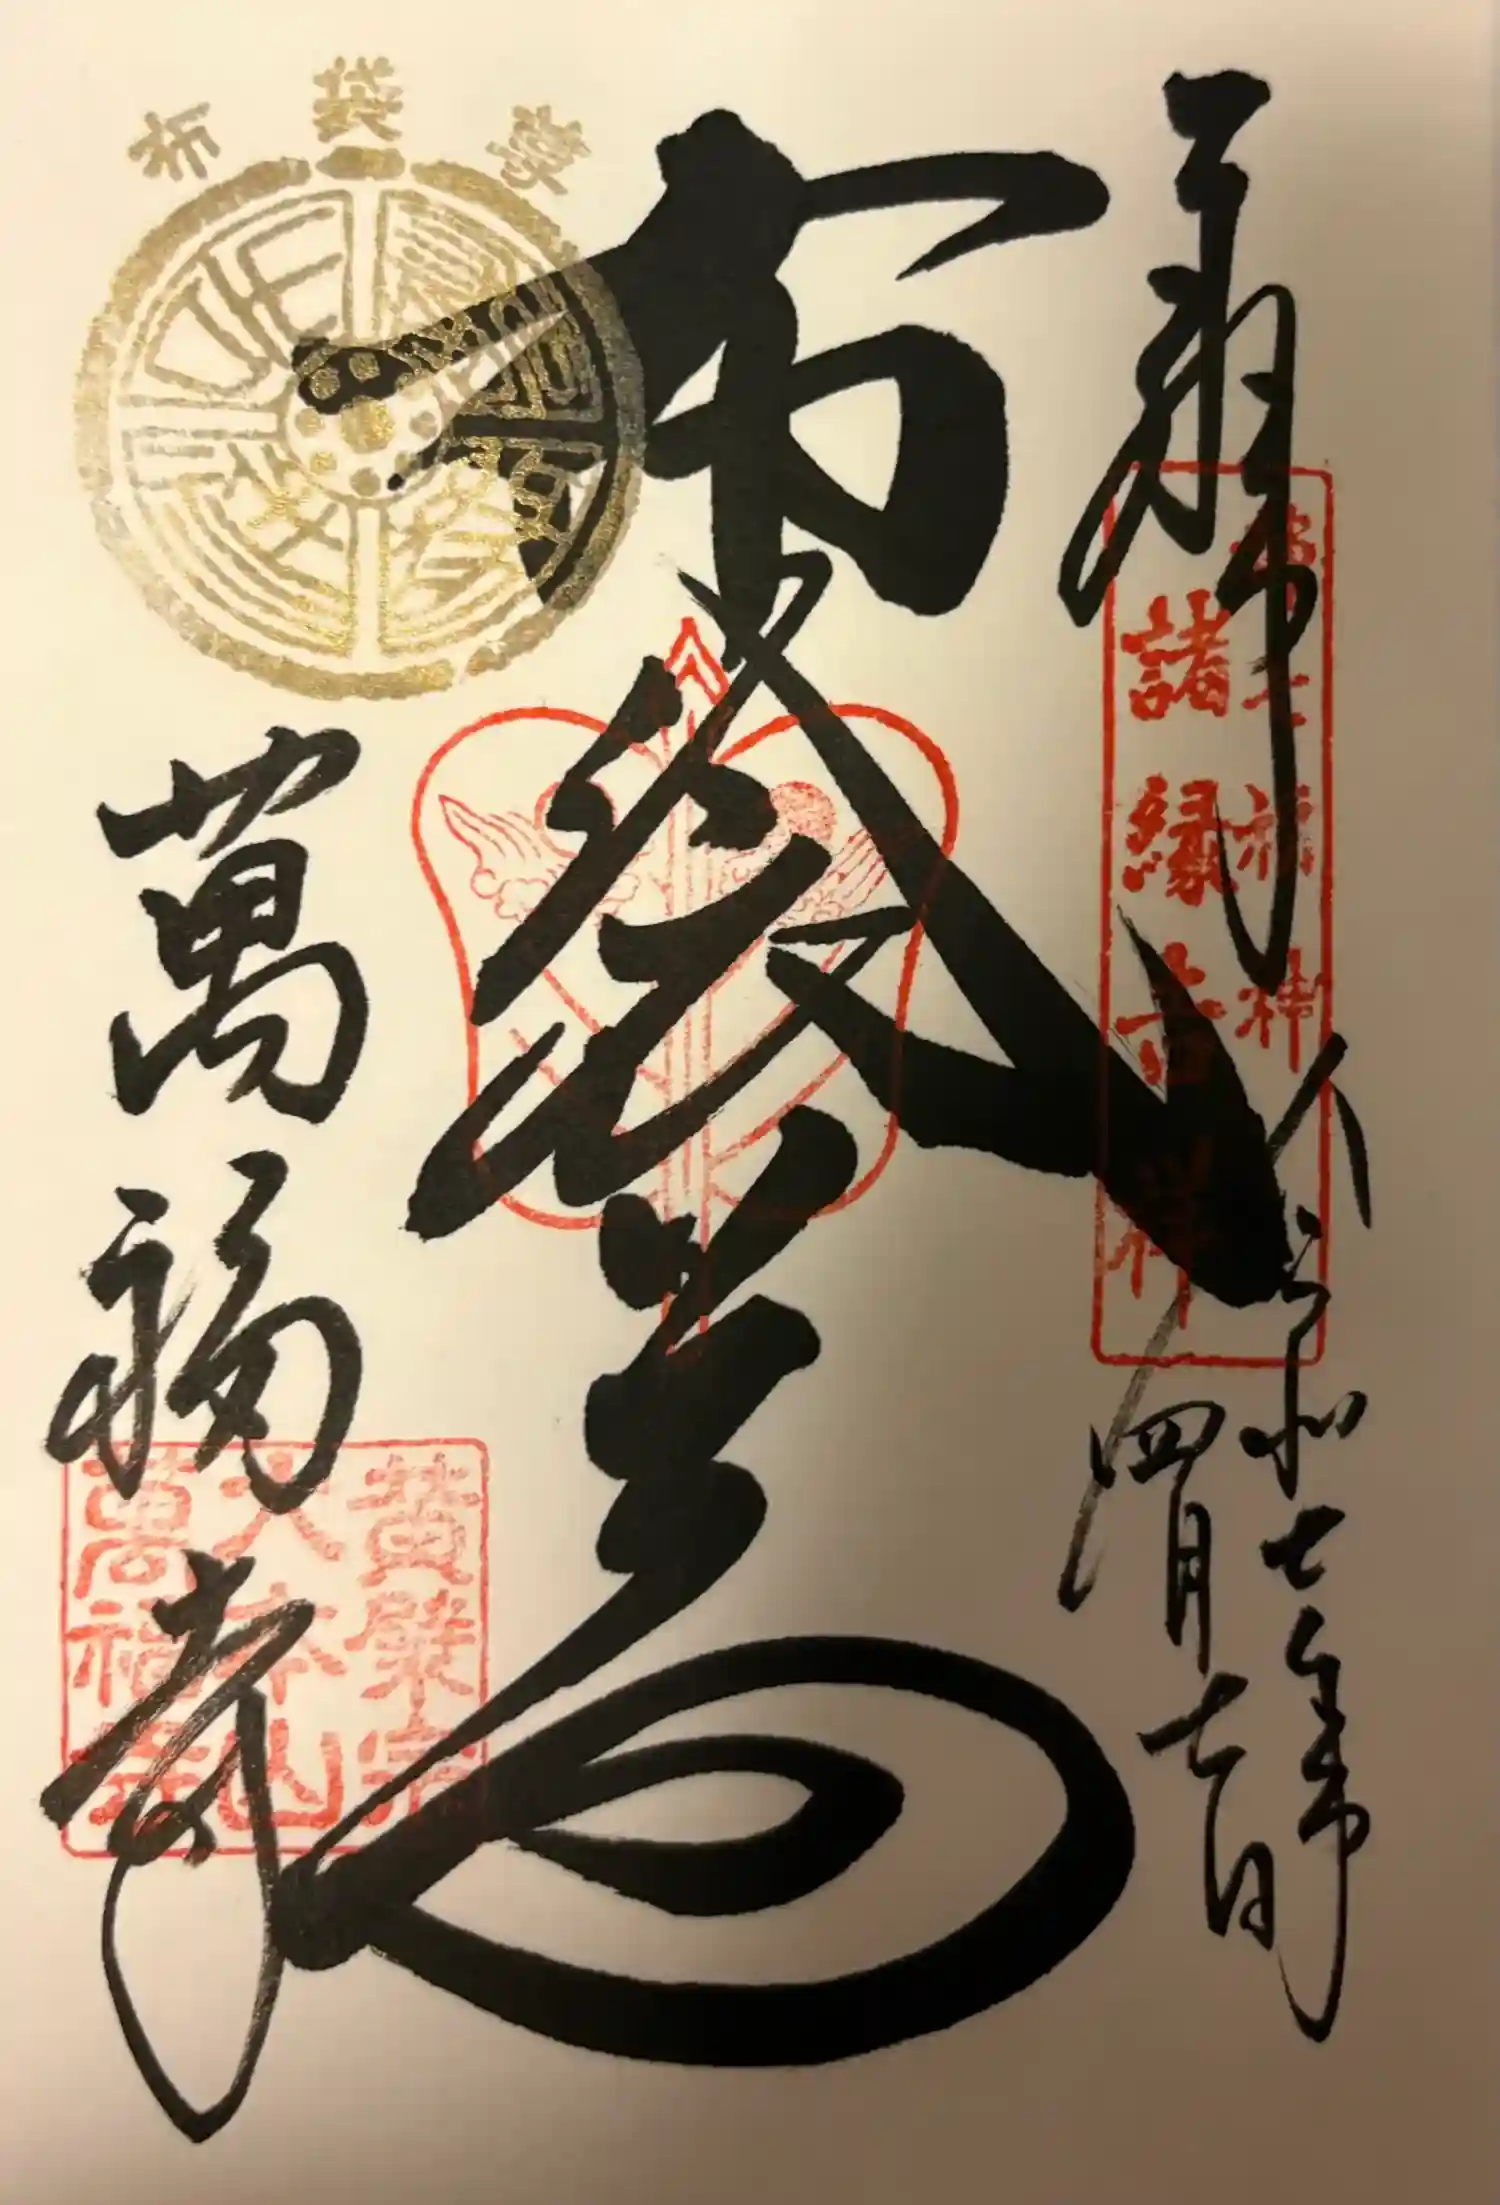 奉拝
令和七年
四月七日
諸縁吉祥
布袋尊
布袋尊
萬福寺
黄檗宗
大本山
萬福寺